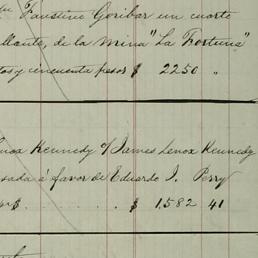 Faustino Goribar un cuarto
llante, de la Mina "La Fortuna"
tos y cincuenta pesos $ 2250 "
nox Kennedy y James Lenox Kennedy
sada á favor de Eduardo J. Perry
$ $ 1,582 41